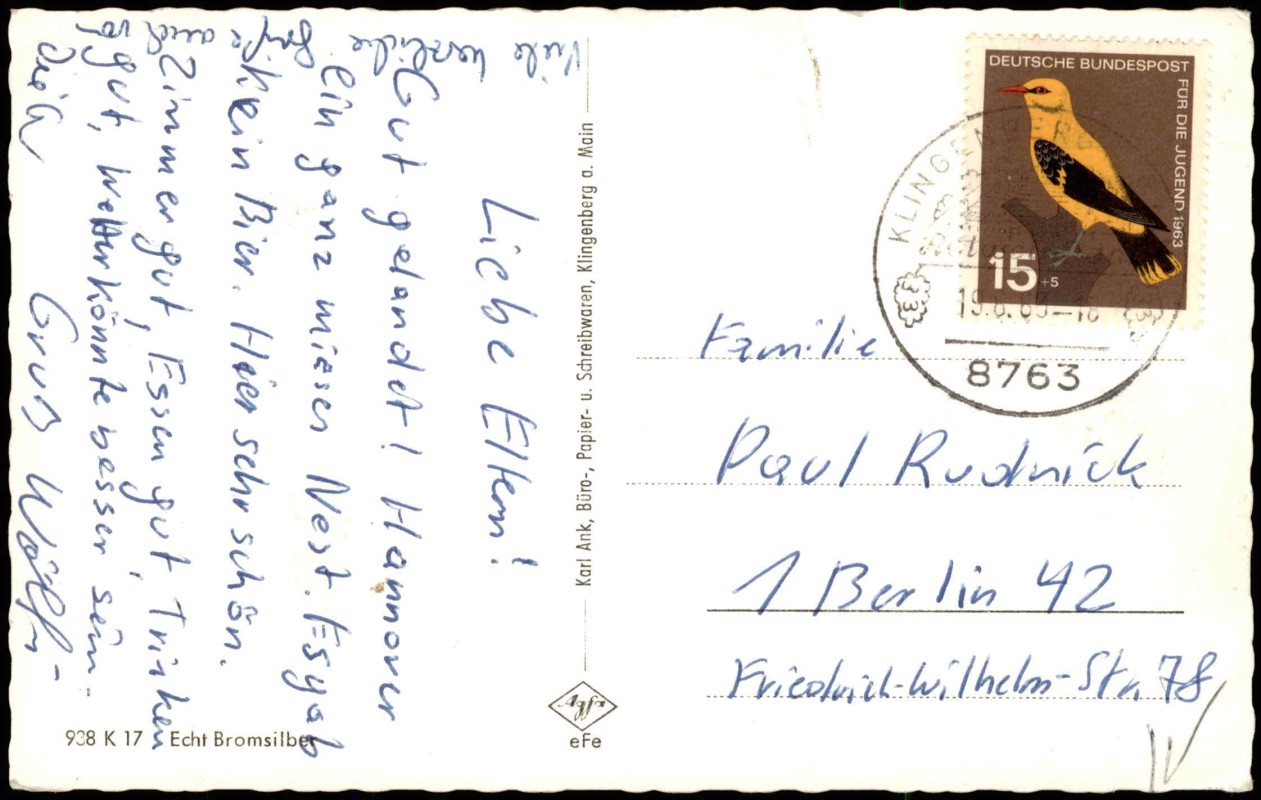 Liebe Eltern!
Gut gelandet! Hannover
ein ganz mieser Nest. Es gab
kein Bier. Hier sehr schön.
Zimmer gut, Essen gut, Trinken
gut, Wetter könnte besser sein.
Gruß Wölfi
Viele herzliche
Grüße
auch
von
Karl Ank, Büro-, Papier- u. Schreibwaren, Klingenberg a. Main
938 K 17 Echt Bromsilber
eFe
DEUTSCHE BUNDESPOST
FÜR DIE JUGEND 1963
15 +5
KLINGENBERG
19.6.63-18
8763
Familie
Paul Rudnick
1 Berlin 42
Friedrich-Wilhelm-Str. 78